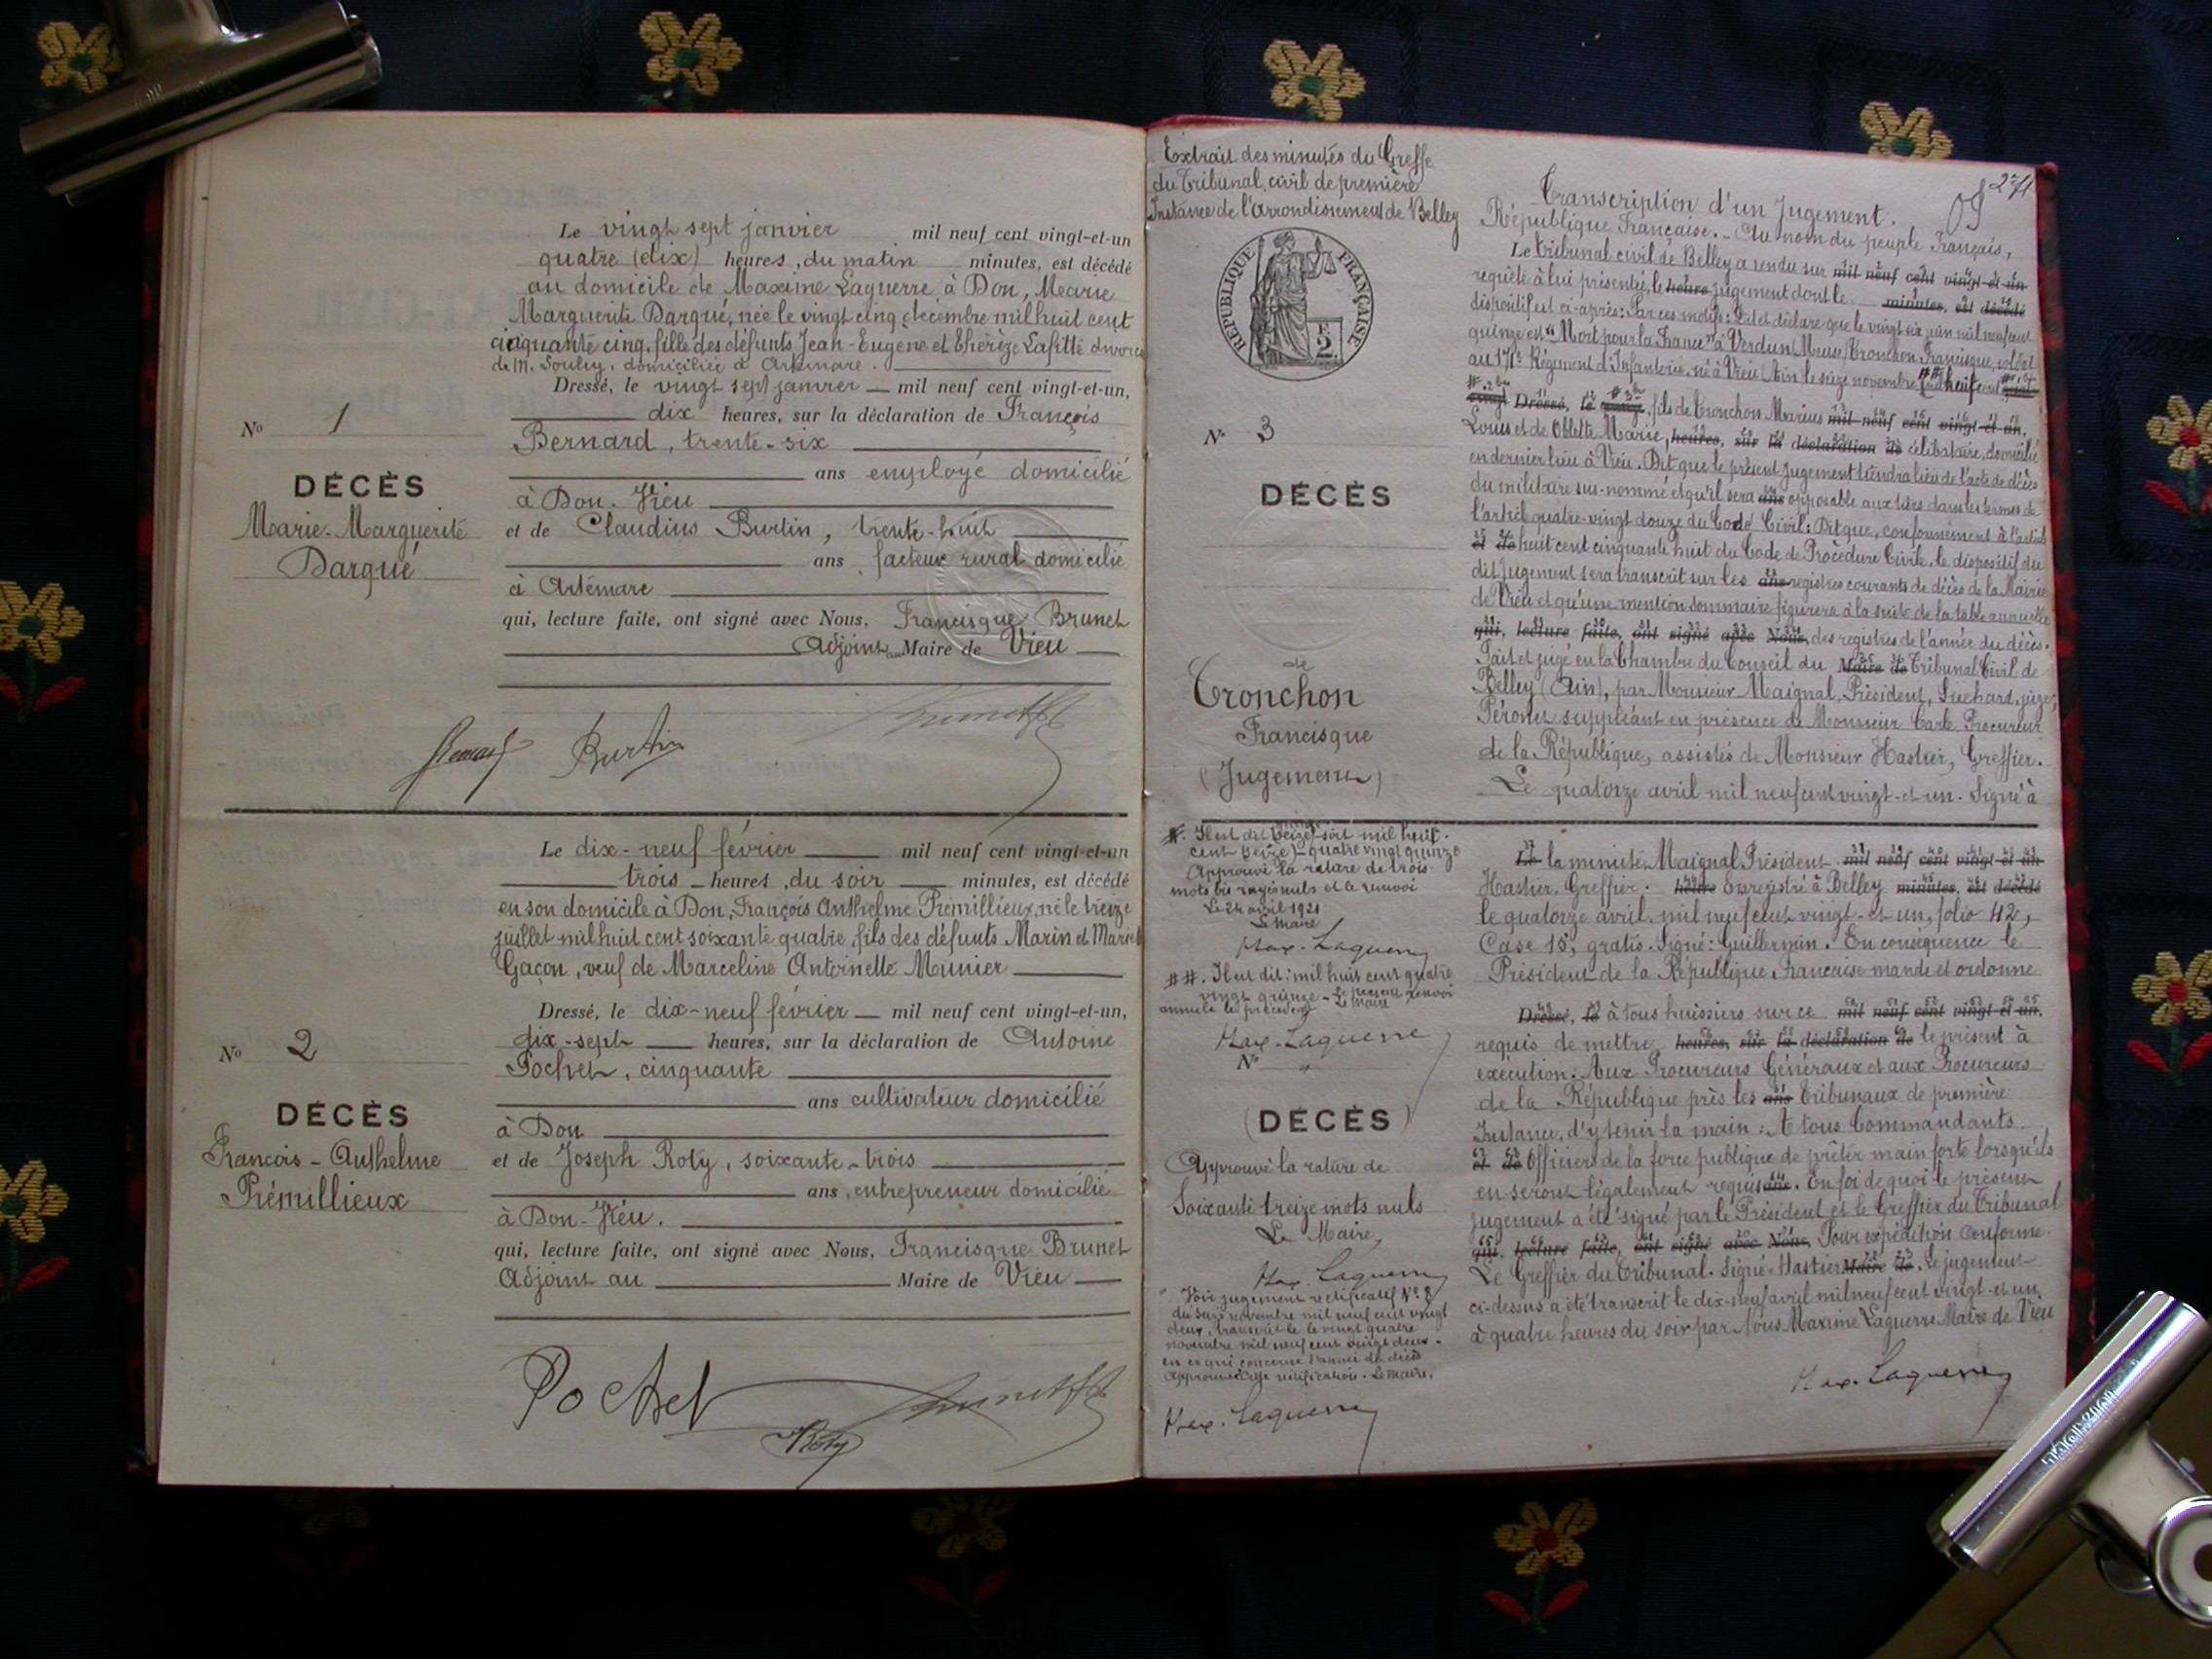 Le vingt sept janvier mil neuf cent vingt-et-un
quatre (dix) heures, du matin minutes, est décédé
au domicile de Maxime Laguerre à Don, Marie
Marguerite Darqué, née le vingt cinq décembre mil huit cent
cinquante cinq, fille des défunts Jean-Eugène et Thérèze Lafitte divorcée
de M. Souley, domiciliée à Artemare.
Dressé, le vingt sept janvier mil neuf cent vingt-et-un,
dix heures, sur la déclaration de François
Bernard, trente-six
ans employé domicilié
à Don-Vieu
et de Claudius Burtin, trente-huit
ans facteur rural domicilié
à Artemare
qui, lecture faite, ont signé avec Nous, Francisque Brunet
Adjoint au Maire de Vieu
No 1
DÉCÈS
Marie-Marguerite
Darqué
Burtin
Le dix-neuf février mil neuf cent vingt-et-un
trois heures, du soir minutes, est décédé
en son domicile à Don, François Anthelme Prémillieux, né le treize
juillet mil huit cent soixante quatre, fils des défunts Marin et Marie
Gaçon, veuf de Marceline Antoinette Munier
Dressé, le dix-neuf février mil neuf cent vingt-et-un,
dix-sept heures, sur la déclaration de Antoine
Pochet, cinquante
ans cultivateur domicilié
à Don
et de Joseph Roty, soixante-trois
ans, entrepreneur domicilié
à Don-Vieu.
qui, lecture faite, ont signé avec Nous, Francisque Brunet
Adjoint au Maire de Vieu
No 2
DÉCÈS
François-Anthelme
Prémillieux
Pochet
Roty
Extrait des minutes du Greffe
du Tribunal civil de première
Instance de l'arrondissement de Belley
RÉPUBLIQUE FRANÇAISE
2
No 3
DÉCÈS
de
Tronchon
Francisque
(Jugement)
cent treize) - quatre vingt quinze
Approuvé la rature de trois
mots rayés nuls et le renvoi
Le 24 avril 1921
Le Maire
Max. Laguerre
##. Il est dit: mil huit cent quatre
vingt quinze - Le présent renvoi
annule le précédent Le Maire
Max. Laguerre
No
(DÉCÈS)
Approuvé la rature de
Soixante treize mots nuls
Le Maire,
Max. Laguerre
Voir jugement rectificatif No 8
du seize novembre mil neuf cent vingt
deux, transcrit le vingt quatre
novembre mil neuf cent vingt deux.
en ce qui concerne l'année du décès
Approuvé cette rectification. Le Maire,
Max. Laguerre
Transcription d'un Jugement.
République Française. - Au nom du peuple Français,
Le Tribunal civil de Belley a rendu sur mil neuf cent vingt-et-un
requête à lui présentée, le heures jugement dont le minutes, est décédé
dispositif est ci-après: Par ces motifs: Dit et déclare que le vingt six juin mil neuf cent
quinze est "Mort pour la France" à Verdun (Meuse) Tronchon Francisque, soldat
au 171e Régiment d'Infanterie, né à Vieu (Ain) le seize novembre mil huit cent
Dressé, le fils de Tronchon Marius mil neuf cent vingt-et-un,
Louis et de Oblette Marie, heures, sur la déclaration de célibataire, domicilié
en dernier lieu à Vieu. Dit que le présent jugement tiendra lieu de l'acte de décès
du militaire sus-nommé et qu'il sera ans opposable aux tiers dans les termes de
l'article quatre-vingt douze du Code Civil: Dit que, conformément à l'article
et de huit cent cinquante huit du Code de Procédure Civile, le dispositif du
dit jugement sera transcrit sur les ans registres courants de décès de la Mairie
de Vieu et qu'une mention sommaire figurera à la suite de la table annuelle
qui, lecture faite, ont signé avec Nous, des registres de l'année du décès.
Fait et jugé en la Chambre du Conseil du Maire de Tribunal Civil de
Belley (Ain), par Monsieur Maignal, Président, Suchard, juge,
Péronet suppléant en présence de Monsieur Carle Procureur
de la République, assistés de Monsieur Hastier, Greffier.
Le quatorze avril mil neuf cent vingt-et-un. Signé à
Le la minute, Maignal Président mil neuf cent vingt-et-un
Hastier, Greffier. heures Enregistré à Belley minutes, est décédé
le quatorze avril mil neuf cent vingt-et-un, folio 42,
Case 15, gratis. Signé: Guillermin. En conséquence le
Président de la République Française mande et ordonne
Dressé, le à tous huissiers sur ce mil neuf cent vingt-et-un,
requis de mettre heures, sur la déclaration de le présent à
exécution: Aux Procureurs Généraux et aux Procureurs
de la République près les ans Tribunaux de première
Instance, d'y tenir la main: A tous Commandants
et de Officiers de la force publique de prêter main forte lorsqu'ils
en seront légalement requis ans. En foi de quoi le présent
jugement a été signé par le Président et le Greffier du Tribunal
qui, lecture faite, ont signé avec Nous, Pour expédition conforme.
Le Greffier du Tribunal. Signé: Hastier Maire de. Le jugement
ci-dessus a été transcrit le dix-neuf avril mil neuf cent vingt-et-un,
à quatre heures du soir par Nous Maxime Laguerre Maire de Vieu
Max. Laguerre